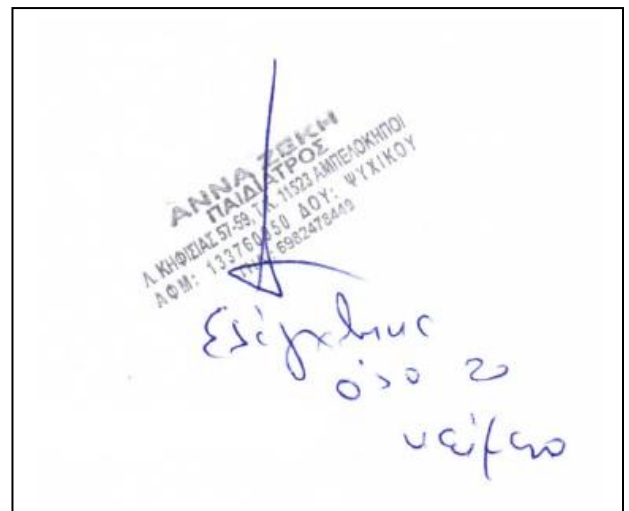 ΑΝΝΑ ΖΕΚΗ
ΠΑΙΔΙΑΤΡΟΣ
Λ. ΚΗΦΙΣΙΑΣ 57-59, Τ.Κ. 11523 ΑΜΠΕΛΟΚΗΠΟΙ
ΑΦΜ: 133760950 ΔΟΥ: ΨΥΧΙΚΟΥ
6982478449
Ελέγχθηκε
όλο το
κείμενο